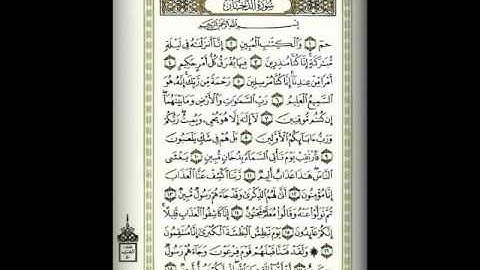 سُورَةُ الدُّخَانِ
بِسْمِ اللَّهِ الرَّحْمَٰنِ الرَّحِيمِ
حم ۝١ وَالْكِتَابِ الْمُبِينِ ۝٢ إِنَّا أَنزَلْنَاهُ فِي لَيْلَةٍ
مُّبَارَكَةٍ إِنَّا كُنَّا مُنذِرِينَ ۝٣ فِيهَا يُفْرَقُ كُلُّ أَمْرٍ حَكِيمٍ ۝٤
أَمْرًا مِّنْ عِندِنَا إِنَّا كُنَّا مُرْسِلِينَ ۝٥ رَحْمَةً مِّن رَّبِّكَ إِنَّهُ هُوَ
السَّمِيعُ الْعَلِيمُ ۝٦ رَبِّ السَّمَاوَاتِ وَالْأَرْضِ وَمَا بَيْنَهُمَا
إِن كُنتُم مُّوقِنِينَ ۝٧ لَا إِلَٰهَ إِلَّا هُوَ يُحْيِي وَيُمِيتُ رَبُّكُمْ
وَرَبُّ آبَائِكُمُ الْأَوَّلِينَ ۝٨ بَلْ هُمْ فِي شَكٍّ يَلْعَبُونَ
۝٩ فَارْتَقِبْ يَوْمَ تَأْتِي السَّمَاءُ بِدُخَانٍ مُّبِينٍ ۝١٠ يَغْشَى
النَّاسَ هَٰذَا عَذَابٌ أَلِيمٌ ۝١١ رَّبَّنَا اكْشِفْ عَنَّا الْعَذَابَ
إِنَّا مُؤْمِنُونَ ۝١٢ أَنَّىٰ لَهُمُ الذِّكْرَىٰ وَقَدْ جَاءَهُمْ رَسُولٌ مُّبِينٌ ۝١٣
ثُمَّ تَوَلَّوْا عَنْهُ وَقَالُوا مُعَلَّمٌ مَّجْنُونٌ ۝١٤ إِنَّا كَاشِفُو الْعَذَابِ قَلِيلًا
إِنَّكُمْ عَائِدُونَ ۝١٥ يَوْمَ نَبْطِشُ الْبَطْشَةَ الْكُبْرَىٰ إِنَّا مُنتَقِمُونَ
۝١٦ ۞ وَلَقَدْ فَتَنَّا قَبْلَهُمْ قَوْمَ فِرْعَوْنَ وَجَاءَهُمْ رَسُولٌ